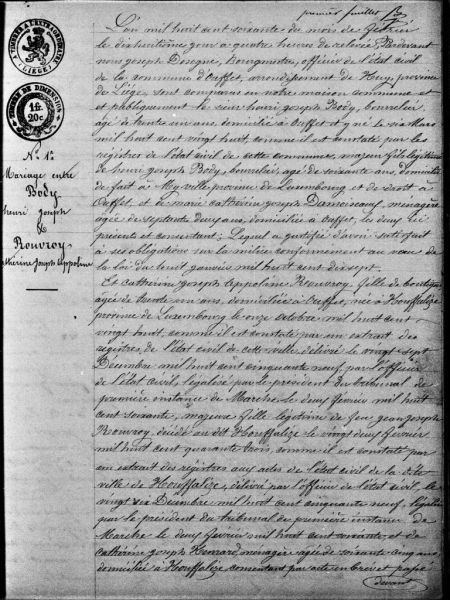 premier feuillet
TIMBRE A L'EXTRAORDINAIRE
(LIEGE)
TIMBRE DE DIMENSION
1 fr
20 c
N° 1er
Mariage entre
Body
henri joseph
&
Rouvroy
catherine Joseph Appoline
L'an mil huit cent soixante du mois de février
le dixhuitième jour à quatre heures de relevée, Pardevant
nous joseph Dosogne, bourgmestre, officier de l'état civil
de la commune d'ouffet, arrondissement de Huy, province
de Liége, sont comparus en notre maison commune et
et publiquement le sieur henri joseph Body, bourrelier
agé de trente un ans, domicilié à ouffet et y né le six Mars
mil huit cent vingt huit, comme il est constaté par les
régistres de l'état civil de cette commune, majeur fils légitime
de henri joseph Body, bourrelier, agé de soixante ans, domicilié
de fait à My ville province de Luxembourg et de droit à
Ouffet, et de marie catherine joseph Damoiseaux, ménagère
agée de septante deux ans, domiciliée à ouffet, les deux ici
présents et consentant; Lequel a justifié d'avoir satisfait
à ses obligations sur la milice conformément au vœu de
la loi du huit janvier mil huit cent dix sept.
Et catherine joseph Appoline Rouvroy, fille de boutique
agée de trente un ans, domiciliée à ouffet, née à Houffalize
province de Luxembourg le onze octobre mil huit cent
vingt huit, comme il est constaté par un extrait des
régistres de l'état civil de cette ville, délivré le vingt sept
Décembre mil huit cent cinquante neuf, par l'officier
de l'état civil, légalisé par le président du tribunal de
première instance de Marche le deux février mil huit
cent soixante, majeure fille légitime de feu jean joseph
Rouvroy, décédé au dit Houffalize le vingt deux février
mil huit cent quarante trois, comme il est constaté par
un extrait des régistres aux actes de l'état civil de la dite
ville de Houffalize, délivré par l'officier de l'état civil, le
vingt six Décembre mil huit cent cinquante neuf, légalisé
par le président du tribunal de première instance de
Marche le deux février mil huit cent soixante, et de
catherine joseph Henrard, ménagère agée de soixante cinq ans,
domiciliée à Houffalize consentant par acte en brevet et passé
devant